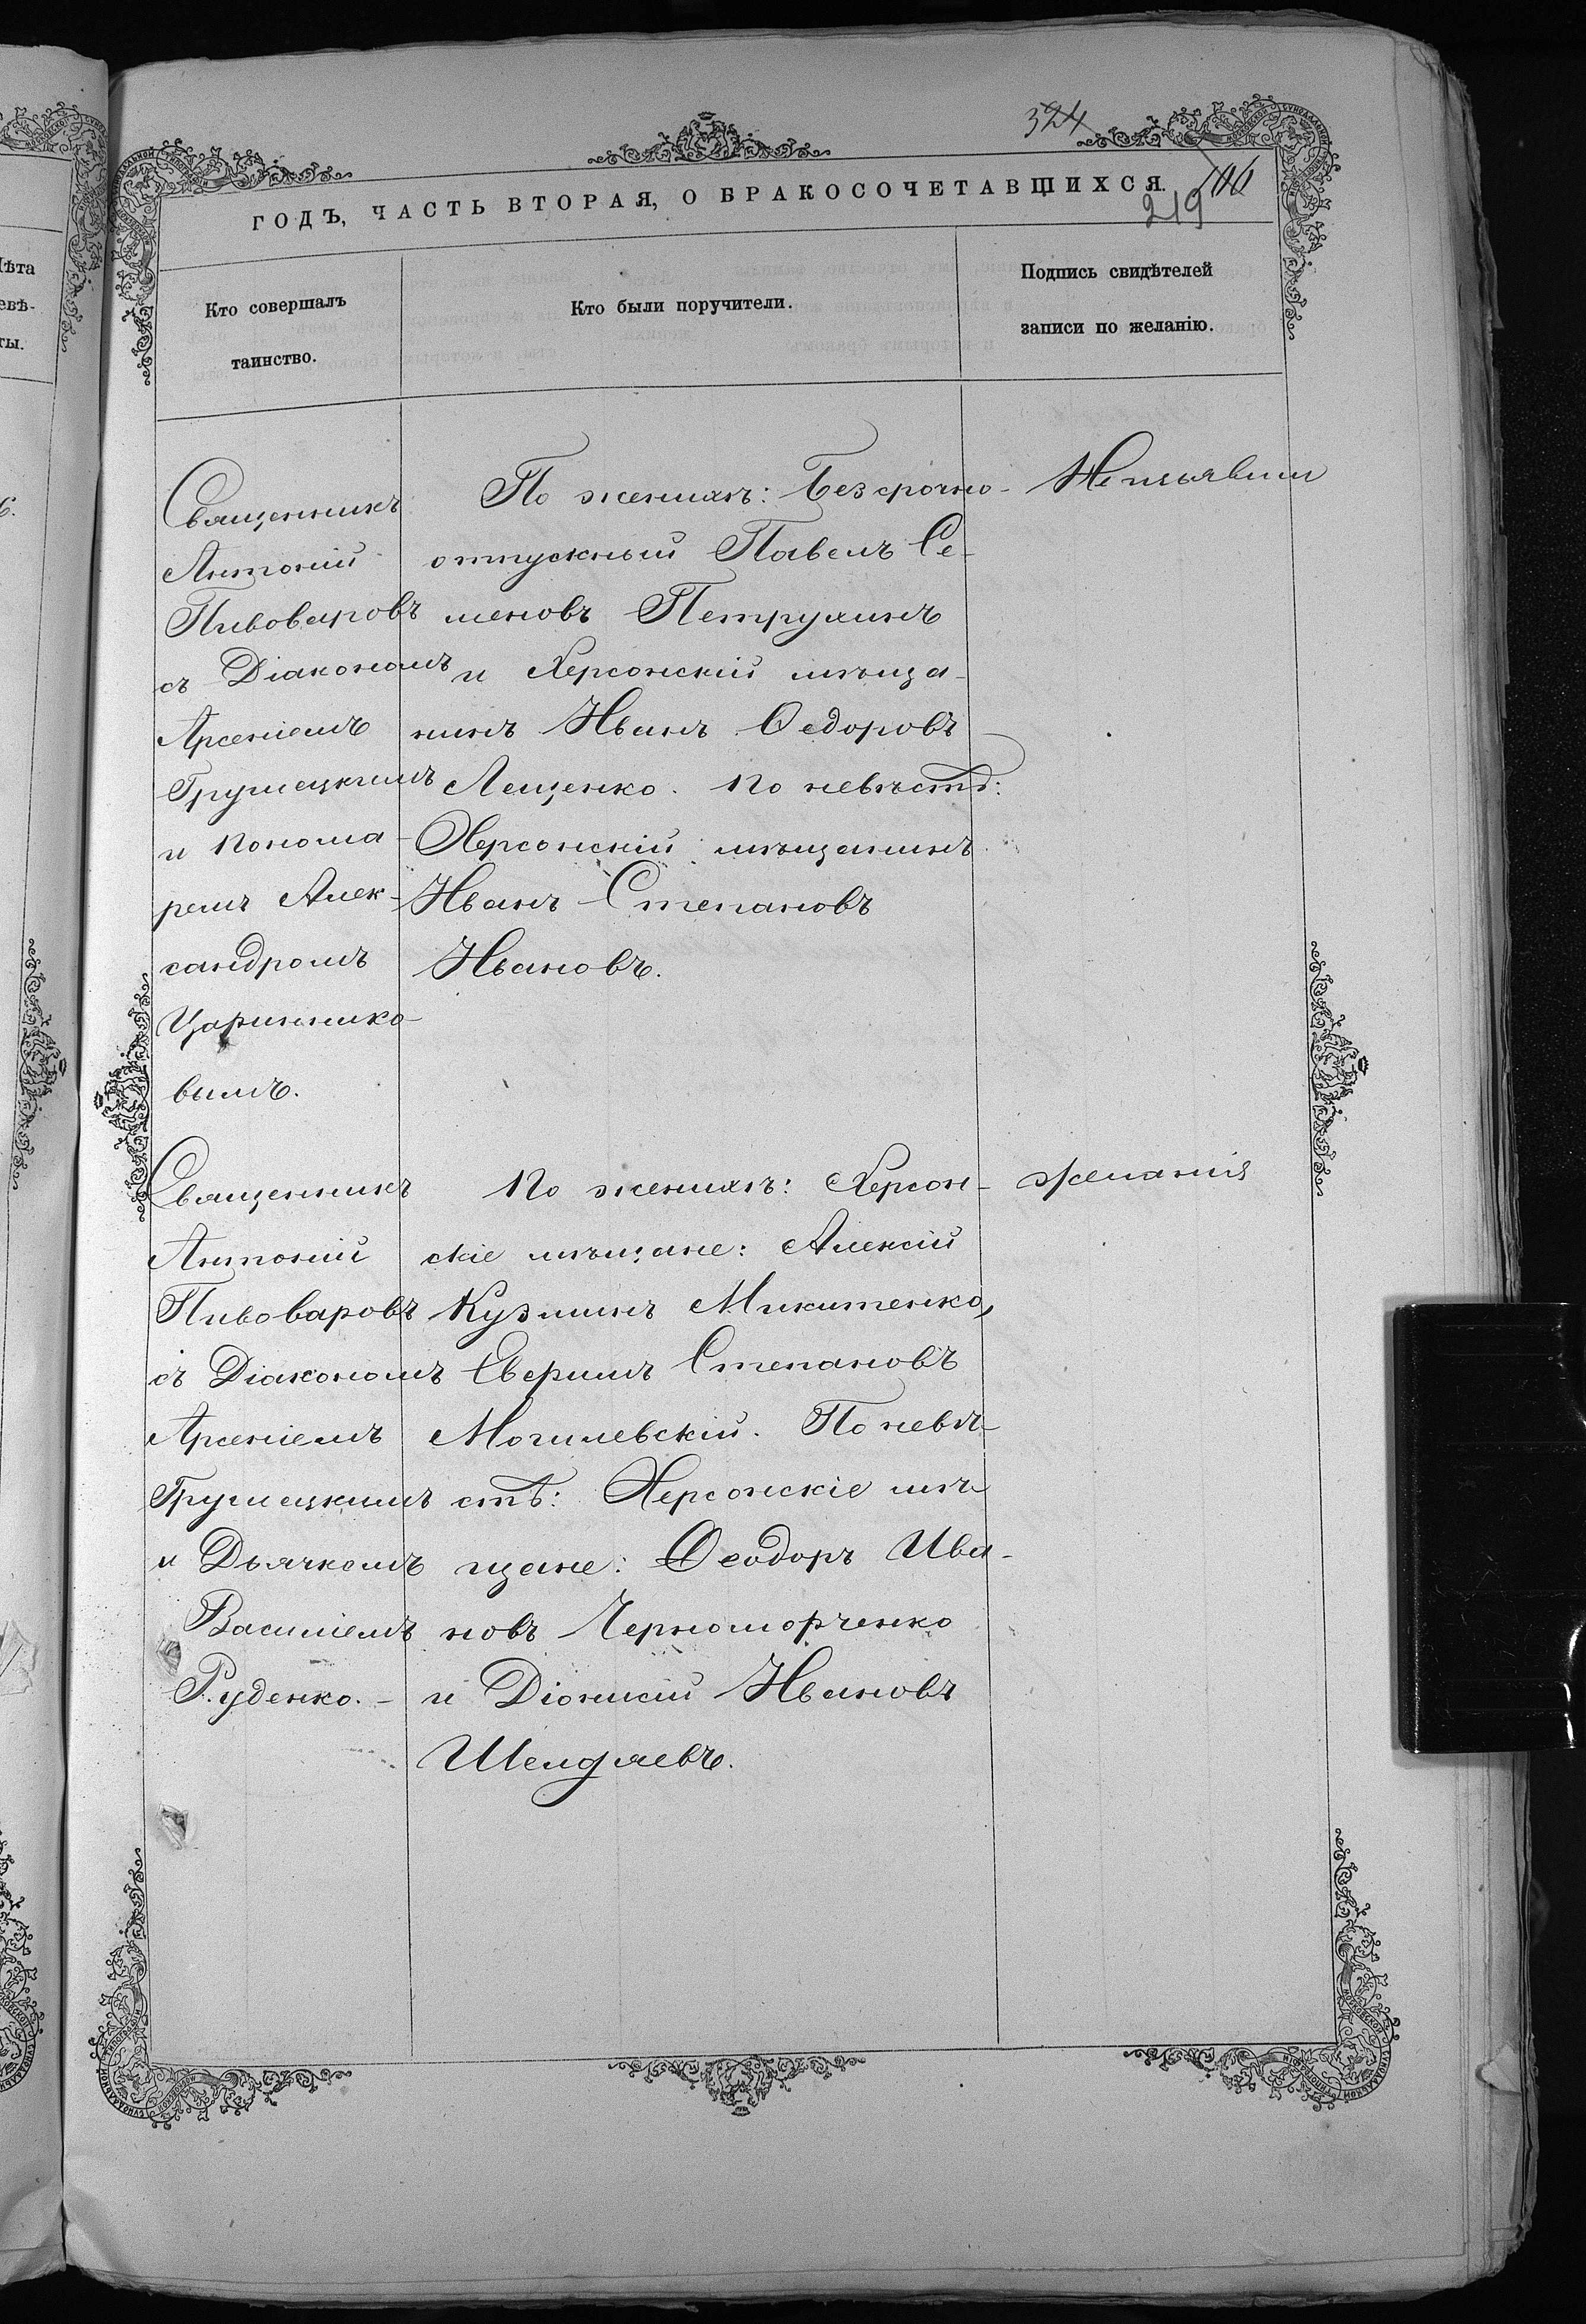 324
106
219
ГОДЪ, ЧАСТЬ ВТОРАЯ, О БРАКОСОЧЕТАВШИХСЯ.
Кто совершалъ
таинство.
Кто были поручители.
Подпись свидѣтелей
записи по желанію.
Священникъ
Антоній
Пивоваровъ
съ Діакономъ
Арсеніемъ
Грушецкимъ
и Понома-
ремъ Алек-
сандромъ
Цариннико-
вымъ.
По женихѣ: Безсрочно-
отпускный Павелъ Се-
меновъ Петрухинъ
и Херсонскій мѣща-
нинъ Иванъ Ѳедоровъ
Лещенко. По невѣстѣ:
Херсонскій мѣщанинъ
Иванъ Степановъ
Ивановъ.
Не изъявили
Священникъ
Антоній
Пивоваровъ
съ Діакономъ
Арсеніемъ
Грушецкимъ
и Дьячкомъ
Василіемъ
Руденко.-
По женихѣ: Херсон-
скіе мѣщане: Алексій
Кузминъ Микитенко,
Степановъ
Могилевскій. По невѣ-
стѣ: Херсонскіе мѣ-
щане: Ѳеодоръ Ива-
новъ Черноморченко
и Діонисій Ивановъ
желанія
лѣта
евѣ-
ты.
6.